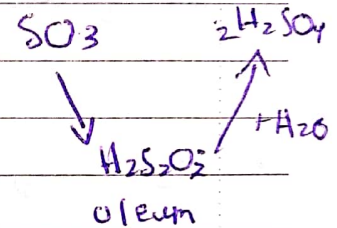 SO3
2H2SO4
+H2O
H2S2O7
oleum